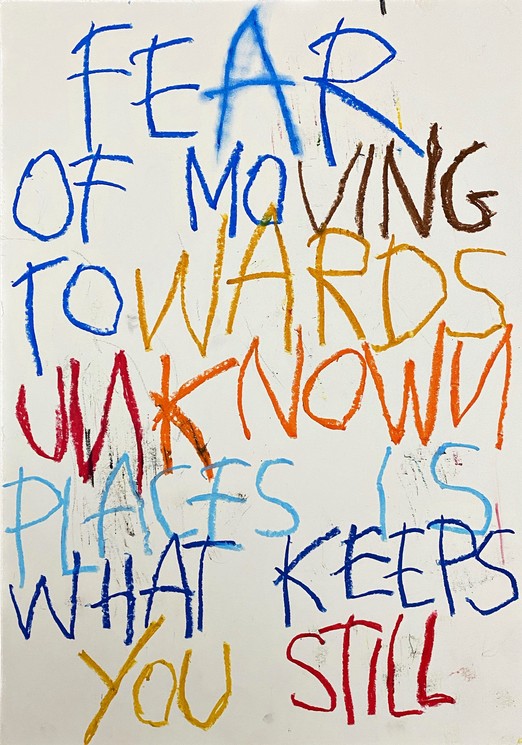 FEAR
OF MOVING
TOWARDS
UNKNOWN
PLACES IS
WHAT KEEPS
YOU STILL